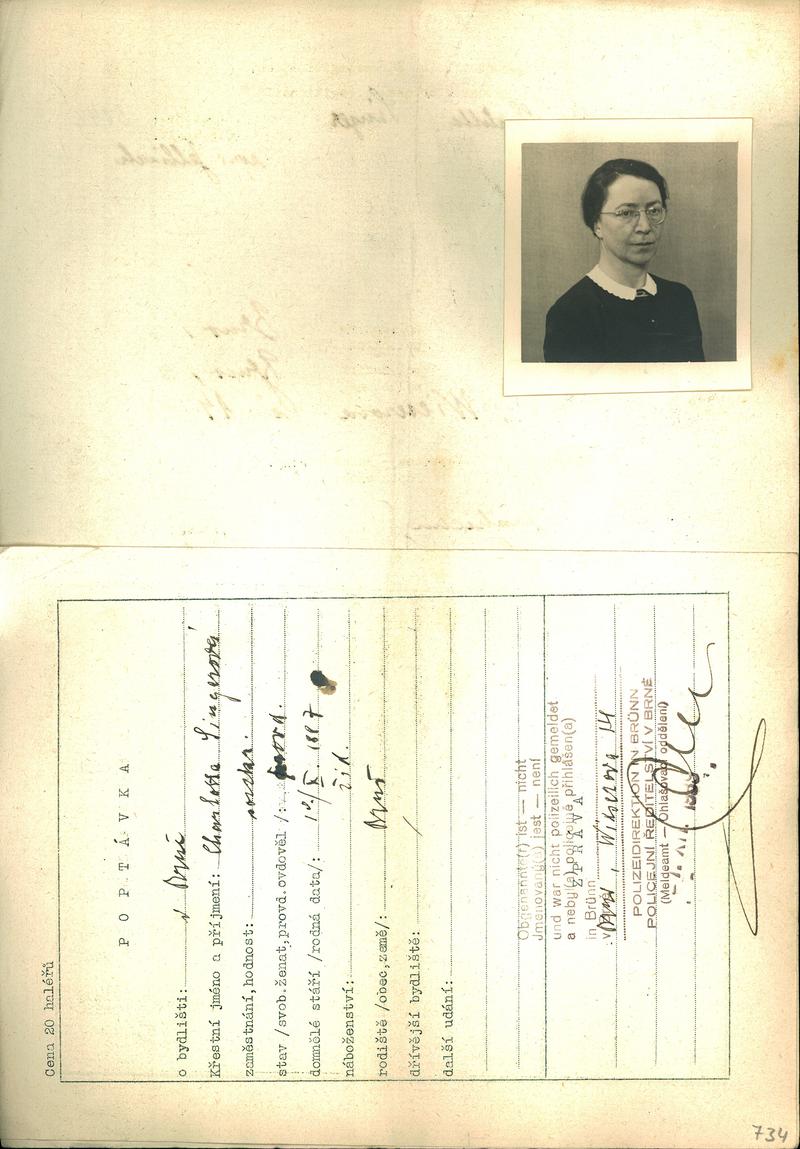 Cena 20 haléřů
P O P T Á V K A
o bydlišti: v Brně
Křestní jméno a příjmení: Charlotta Singerová
zaměstnání, hodnost:
stav /svob.ženat,provd.ovdověl /: provd.
domnělé stáří /rodná data/: 10/X. 1887
náboženství: žid.
rodiště /obec,země/: Brno
dřívější bydliště: /
další udání:
Obgenannte(r) ist — nicht
Jmenovaný() jest — není
und war nicht polizeilich gemeldet
a neby(a) policejně přihlášen(a)
Z P R Á V A
in Brünn
v Brně, Wienerova 14
POLIZEIDIREKTION IN BRÜNN
POLICEJNÍ ŘEDITELSTVÍ V BRNĚ
(Meldeamt — Ohlašovací oddělení)
734